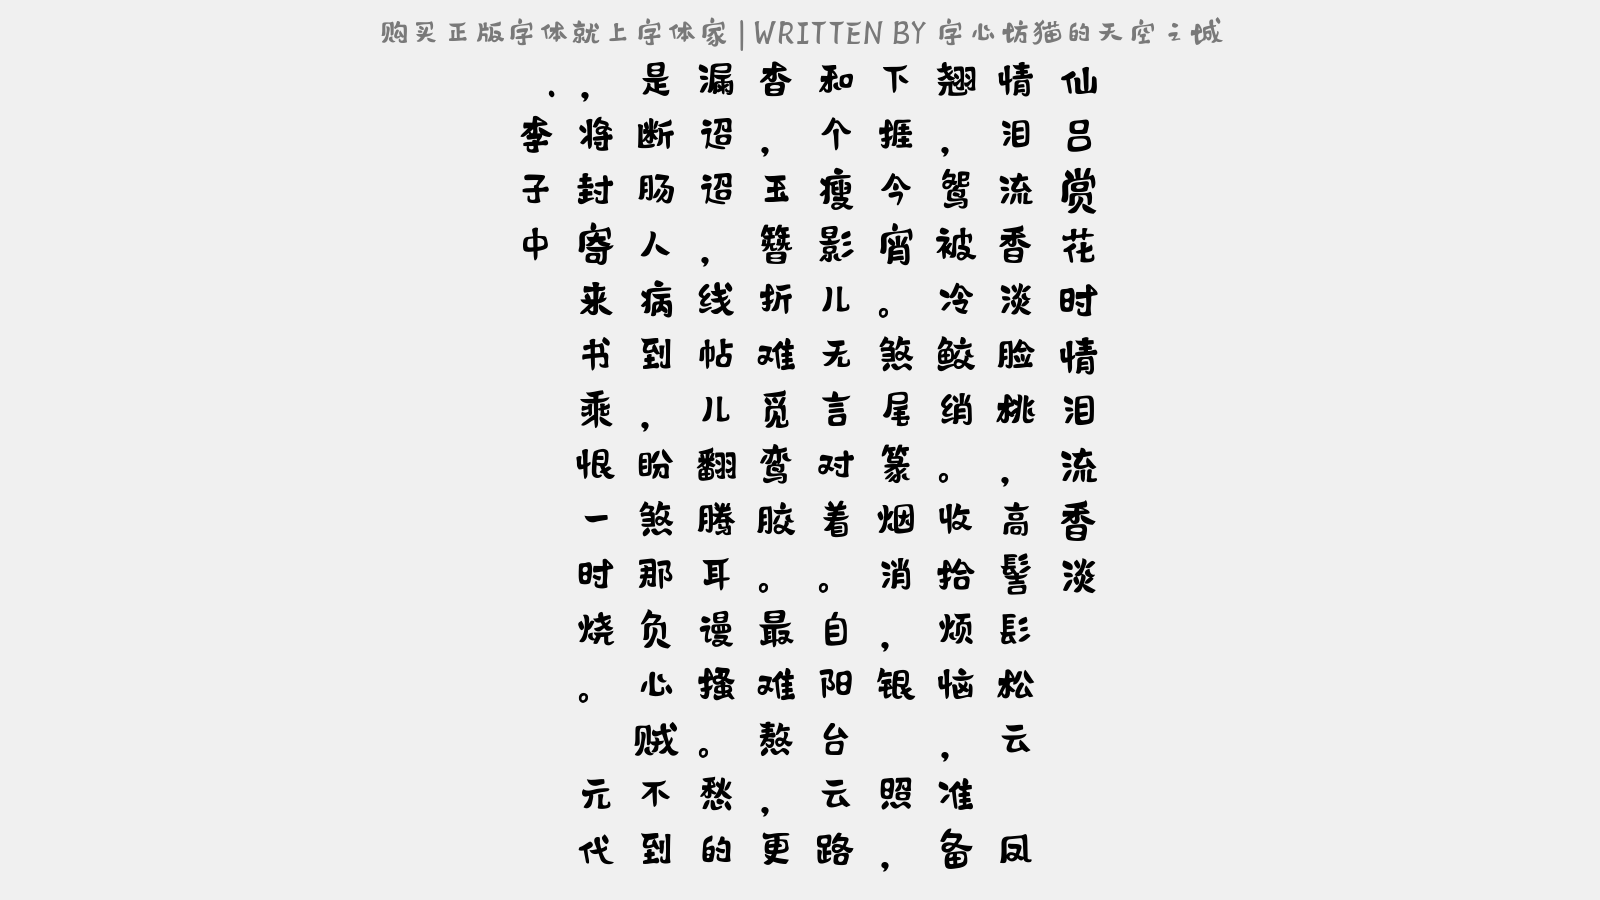 购买正版字体就上字体家|WRITTEN BY 字心坊猫的天空之城
仙吕赏花时情泪流香淡
情泪流香淡脸桃，高髻髟松云 凤
翘，鸳被冷鲛绡。收拾烦恼，准备
下捱今宵。煞尾篆烟消，银 照，
和个瘦影儿无言对着。自阳台云路
杳，玉簪折难觅鸾胶。最难熬，更
漏迢迢，线帖儿翻腾耳谩搔。愁的
是断肠人病到，盼煞那负心贼不到
，将封寄来书乘恨一时烧。 元代
.李子中